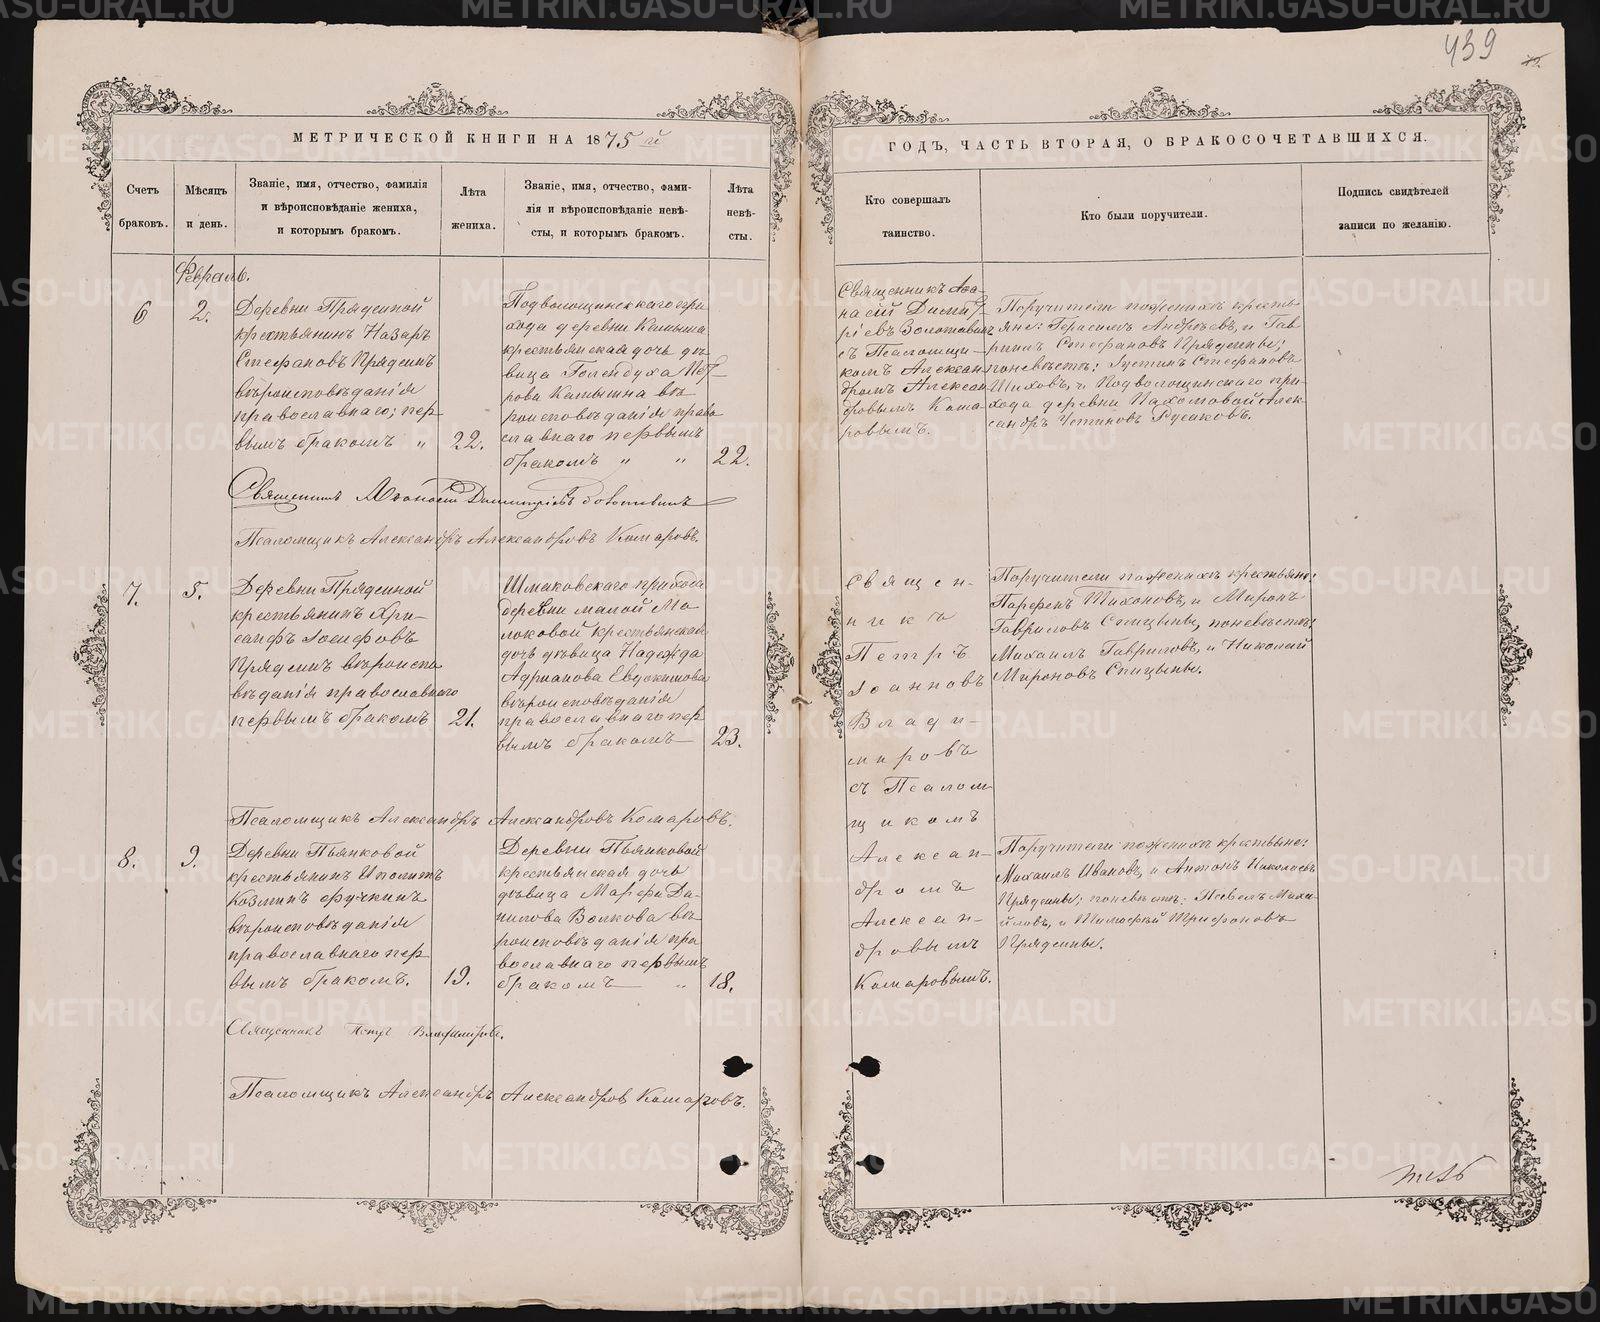 439
МЕТРИЧЕСКОЙ КНИГИ НА 1875 й
ГОДЪ, ЧАСТЬ ВТОРАЯ, О БРАКОСОЧЕТАВШИХСЯ.
Счетъ
браковъ.
Мѣсяцъ
и день.
Званіе, имя, отчество, фамилія
и вѣроисповѣданіе жениха,
и которымъ бракомъ.
Лѣта
жениха.
Званіе, имя, отчество, фами-
лія и вѣроисповѣданіе невѣ-
сты, и которымъ бракомъ.
Лѣта
невѣ-
сты.
Кто совершалъ
таинство.
Кто были поручители.
Подпись свидѣтелей
записи по желанію.
Февраль.
6
2.
Деревни Пряденной
крестьянинъ Назаръ
Стефановъ Пряденъ
вѣроисповѣданія
православнаго; пер
вымъ бракомъ "
22.
Подволощинскаго при
хода деревни Камышна
крестьянская дочь дѣ
вица Голендуха Пет
рова Камышна вѣ
роисповѣданія право
славнаго первымъ
бракомъ " "
22.
Священникъ Аѳа-
насій Димит
ріевъ Золотавинъ
съ Псаломщи-
комъ Алексан
дромъ Алексан
дровымъ Кома-
ровымъ.
Поручители по женихѣ кресть
яне: Герасимъ Андреевъ, и Гав
рилъ Стефановъ Прядеины;
по невѣстѣ: Густинъ Стефановъ
Шиховъ, и Подволощинскаго при-
хода деревни Пахомовой Алек-
сандръ Русаковъ.
Священникъ Аѳанасій Димитріевъ Золотавинъ
Псаломщикъ Александръ Александровъ Комаровъ.
7.
5.
Деревни Пряденной
крестьянинъ Хри-
санфъ Іосифовъ
Пряденъ вѣроиспо
вѣданія православнаго
первымъ бракомъ
21.
Шмаковскаго прихода
деревни малой Мо
локовой крестьянская
дочь дѣвица Надежда
Адріанова Евдокимова
вѣроисповѣданія
православнаго пер
вымъ бракомъ
23.
Священ-
никъ
Петръ
Іоанновъ
Влади-
мировъ
съ Псалом
щикомъ
Алексан-
дромъ
Алексан-
дровымъ
Комаровымъ.
Поручители по женихѣ крестьяне:
Парфенъ Тихоновъ, и Миронъ
Гавриловъ Спицыны, по невѣстѣ:
Михаилъ Гавриловъ, и Николай
Мироновъ Спицыны.
Псаломщикъ Александръ Александровъ Комаровъ.
8.
9.
Деревни Пьянковой
крестьянинъ Иполитъ
Козминъ Фучкинъ
вѣроисповѣданія
православнаго пер
вымъ бракомъ.
19.
Деревни Пьянковой
крестьянская дочь
дѣвица Марфа Да-
нилова Волкова вѣ
роисповѣданія пра
вославнаго первымъ
бракомъ "
18.
Поручители по женихѣ крестьяне:
Михаилъ Ивановъ, и Антонъ Николаевъ
Прядеины; по невѣстѣ: Павелъ Миха-
йловъ, и Тимофей Трифоновъ
Прядеины.
Священникъ Петръ Владиміровъ.
Псаломщикъ Александръ Александров Комаровъ.
METRIKI.GASO-URAL.RU